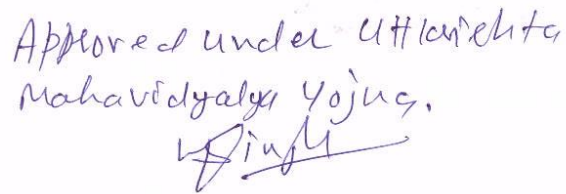 Approved under Uttkrishta
Mahavidyalya Yojna.
Singh